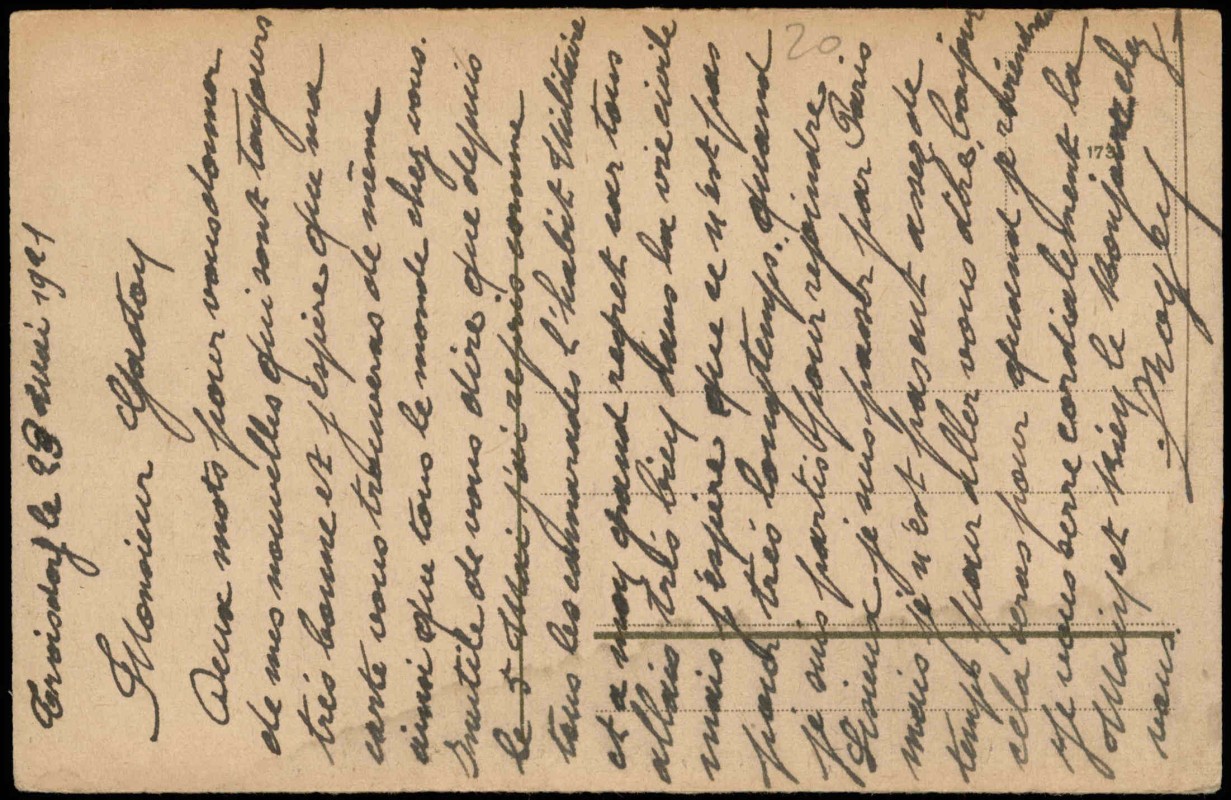 Troisdorf le 23 Mai 1921
Monsieur Gaston
Deux mots pour vous donner
de mes nouvelles qui sont toujours
très bonne et j'espire que ma
carte vous trouveras de même
ainsi que tous le monde chez vous.
Inutile de vous dire que depuis
le 5 Mai j'ai repris comme
tous les camarades l'habit Militaire
et a mon grand regret car tous
allais très bien dans la vie civile
mais j'espire que ce n'est pas
pour très longtemps. quand
je suis partis pour rejoindre
je suis passer par Paris
mais je n'est pas eut assez de
temps pour aller vous dire bonjour
cela seras pour quand je
Je vous serre cordialement la
Main et bien le bonjour chez
vous
20
173